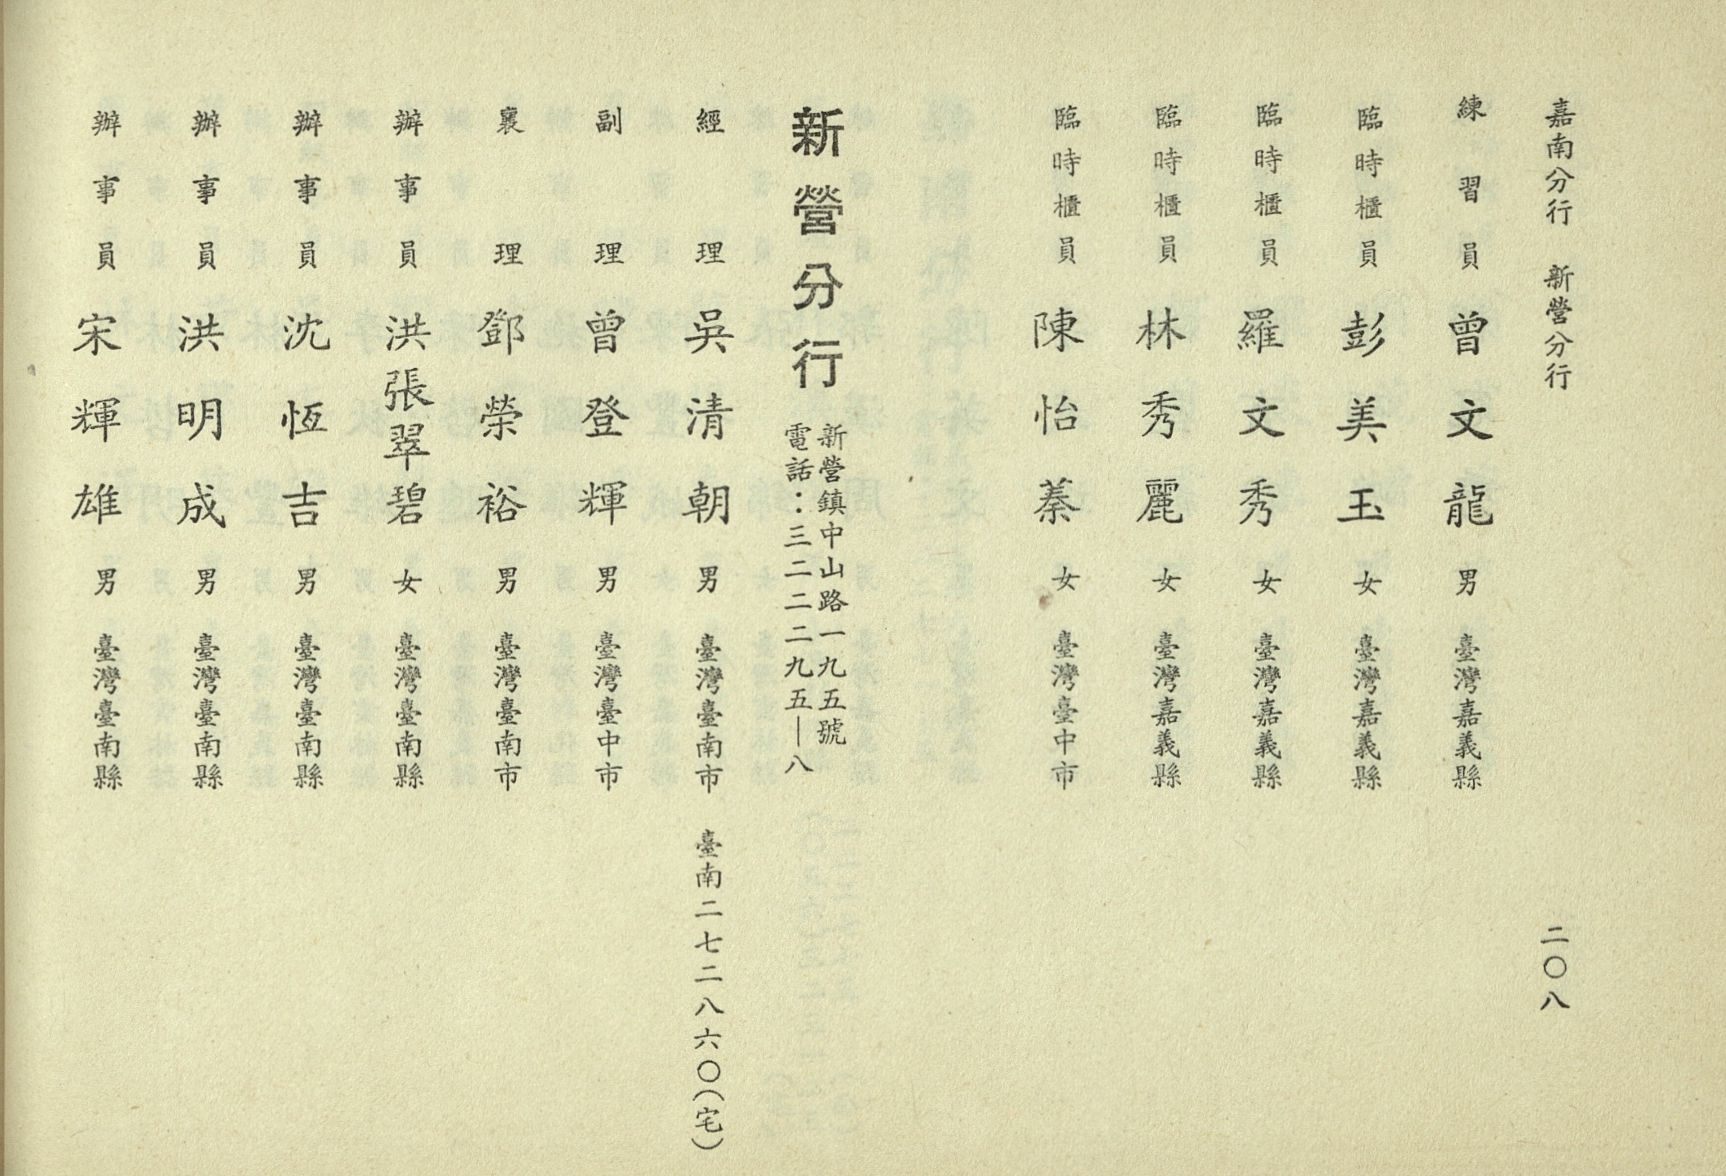 嘉南分行　新營分行
二〇八
練習員　曾文龍　男　臺灣嘉義縣
臨時櫃員　彭美玉　女　臺灣嘉義縣
臨時櫃員　羅文秀　女　臺灣嘉義縣
臨時櫃員　林秀麗　女　臺灣嘉義縣
臨時櫃員　陳怡蓁　女　臺灣臺中市
新營分行
新營鎮中山路一九五號
電話：三二二二九五－八
經理　吳清朝　男　臺灣臺南市　臺南二七二八六〇（宅）
副理　曾登輝　男　臺灣臺中市
襄理　鄧榮裕　男　臺灣臺南市
辦事員　洪張翠碧　女　臺灣臺南縣
辦事員　沈恆吉　男　臺灣臺南縣
辦事員　洪明成　男　臺灣臺南縣
辦事員　宋輝雄　男　臺灣臺南縣